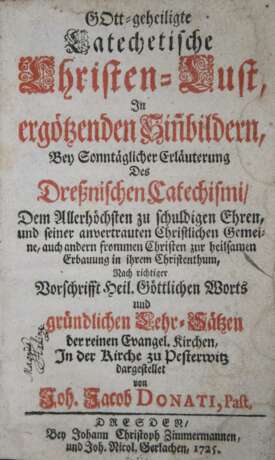 GOtt-geheiligte
Catechetische
Christen-Lust,
In
ergötzenden Siñbildern,
Bey Sonntäglicher Erläuterung
Des
Dreßnischen Catechismi/
Dem Allerhöchsten zu schuldigen Ehren,
und seiner anvertrauten Christlichen Gemei-
ne, auch andern frommen Christen zur heilsamen
Erbauung in ihrem Christenthum,
Nach richtiger
Vorschrifft Heil. Göttlichen Worts
und
gründlichen Lehr-Sätzen
der reinen Evangel. Kirchen,
In der Kirche zu Pesterwitz
dargestellet
von
Joh. Jacob DONATI, Past.
DRESDEN/
Bey Johann Christoph Zimmermannen,
und Joh. Nicol. Gerlachen, 1725.